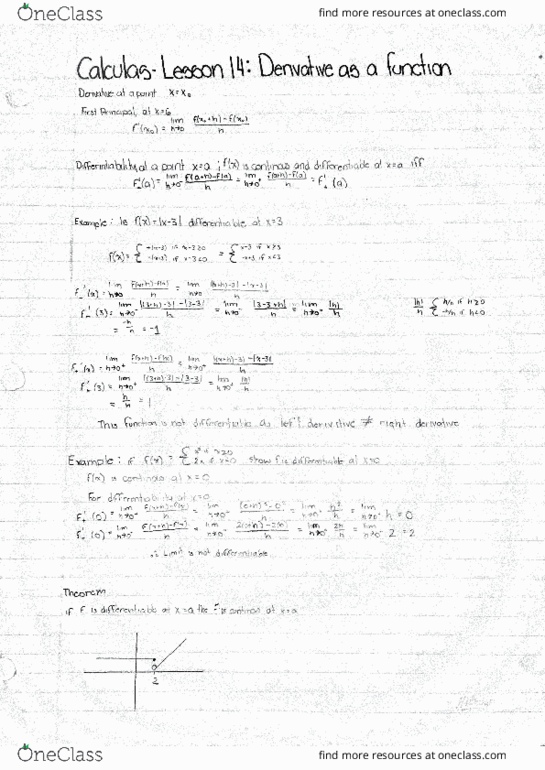 OneClass
find more resources at oneclass.com
Calculas- Lesson 14: Derivative as a function
Derivative at a point x=x₀
First Principal, at x=
f'(x₀) = lim h→0 f(x₀+h)-f(x₀) / h
Differentiability at a point x=a ; f(x) is continous and differentiable at x=a iff
f'₋(a) = lim h→0⁻ f(a+h)-f(a) / h = lim h→0⁺ f(a+h)-f(a) / h = f'₊(a)
Example: f(x)=|x-3| differentiable at x=3
f(x)= { +(x-3) if x-3≥0 -(x-3) if x-3<0 = { x-3 if x≥3 if x<3
f'₋(x) = lim h→0⁻ f(x+h)-f(x) / h = lim h→0⁻ |(x+h)-3|-|x-3| / h
f'₋(3) = lim h→0⁻ |(3+h)-3|-|3-3| / h = lim h→0⁻ |3-3+h| / h = lim h→0⁻ |h| / h
|h| / h { h/h if h≥0 -h/h if h<0
= -h / h = -1
f'₊(x) = lim h→0⁺ f(x+h)-f(x) / h = lim h→0⁺ |(x+h)-3|-|x-3| / h
f'₊(3) = lim h→0⁺ |(3+h)-3|-|3-3| / h = lim h→0⁺ |h| / h
= h / h = 1
This function is not differentiable as left derivitive ≠ right derivative
Example: if f(x) = { x² if x≥0 2x if x<0 show f is differentiable at x=0
f(x) is continous at x=0
For differentiability at x=0
(0) = lim h→0 f(x+h)-f(x) / h = lim h→0 (0+h)²-0² / h = lim h→0 h² / h = lim h→0 h = 0
(0) = lim h→0 f(x+h)-f(x) / h = lim h→0 2(0+h)-2(0) / h = lim h→0 2h / h = lim h→0 2 = 2
∴ Limit is not differentiable
Theorem
if f is differentiable at x=a the f is continous at x=a
2
OneClass
find more resources at oneclass.com